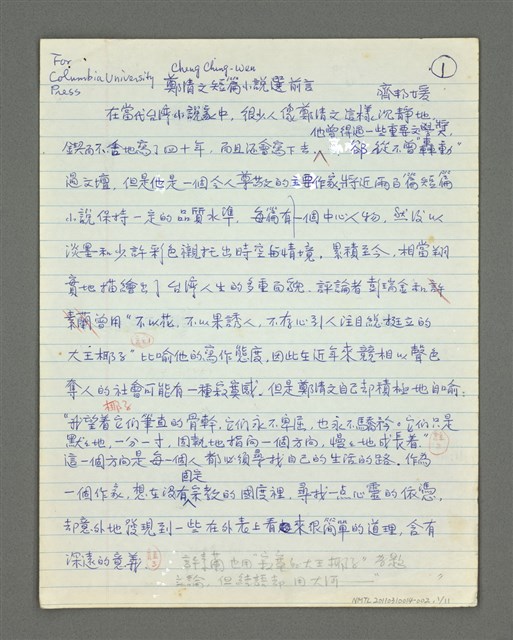 For
Columbia University
Press
Cheng Ching-wen
①
鄭清文短篇小說選前言
齊邦媛
在當代台灣小說家中，很少人像鄭清文這樣沉靜地
他曾得過一些重要文學獎，
鍥而不舍地寫了四十年，而且還會寫下去。卻從不曾"轟動"
過文壇，但是他是一個令人尊敬的主要作家。將近兩百篇短篇
小說保持一定的品質水準，每篇有一個中心人物，然後以
淡墨和少許彩色襯托出時空與情境，累積至今，相當翔
實地描繪出了台灣人生的多重面貌。評論者彭瑞金和許
素蘭曾用"不以花，不以果誘人，不存心引人注目總挺立的
大王椰子"比喻他的寫作態度，因此在近年來競相以聲色
奪人的社會可能有一種寂寞感。但是鄭清文自己卻積極地自喻：
椰子
"我望著它們筆直的骨幹，它們永不卑屈，也永不驕矜。它們只是
默默地，一分一寸，固執地指向一個方向，慢慢地成長著。"
這一個方向是每一個人都必須尋找自己的生活的路。作為
固定
一個作家，想在沒有宗教的國度裡，尋找一點心靈的依憑，
卻意外地發現到一些在外表上看起來很簡單的道理，含有
深遠的意義
許素蘭也用"大王椰子"
NMTL 20110310014-002 1/11